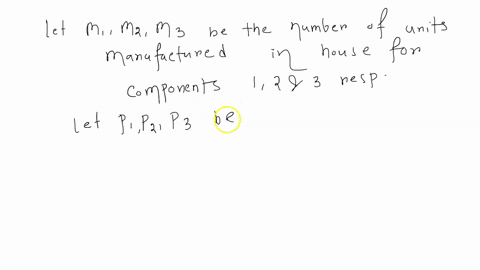 let m1, m2, m3 be the number of units
manufactured in house for
components 1, 2 & 3 resp.
let P1, P2, P3 be